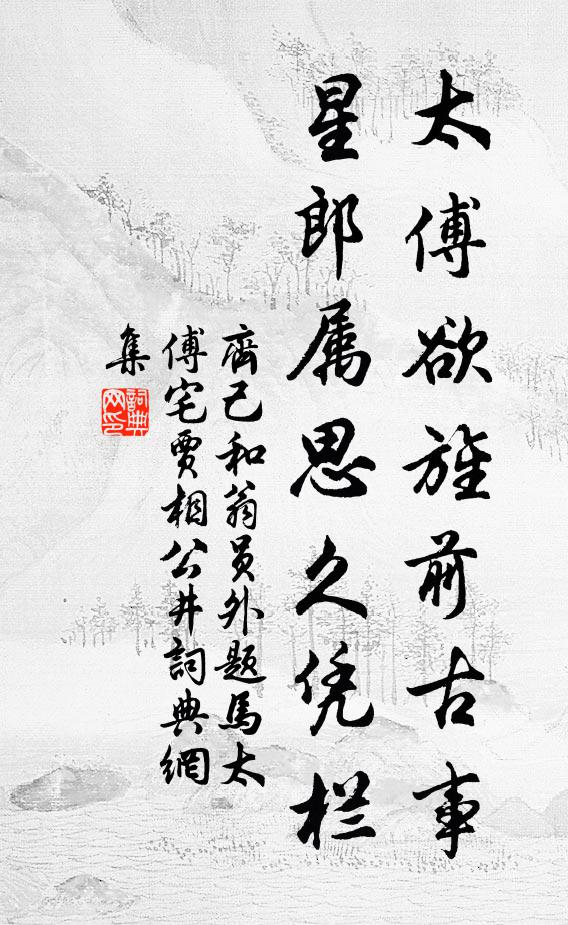 太傅欲旌前古事
星郎属思久凭栏
齊己和翁員外題馬太
傅宅賈相公井詞典網
集
詞典
网印